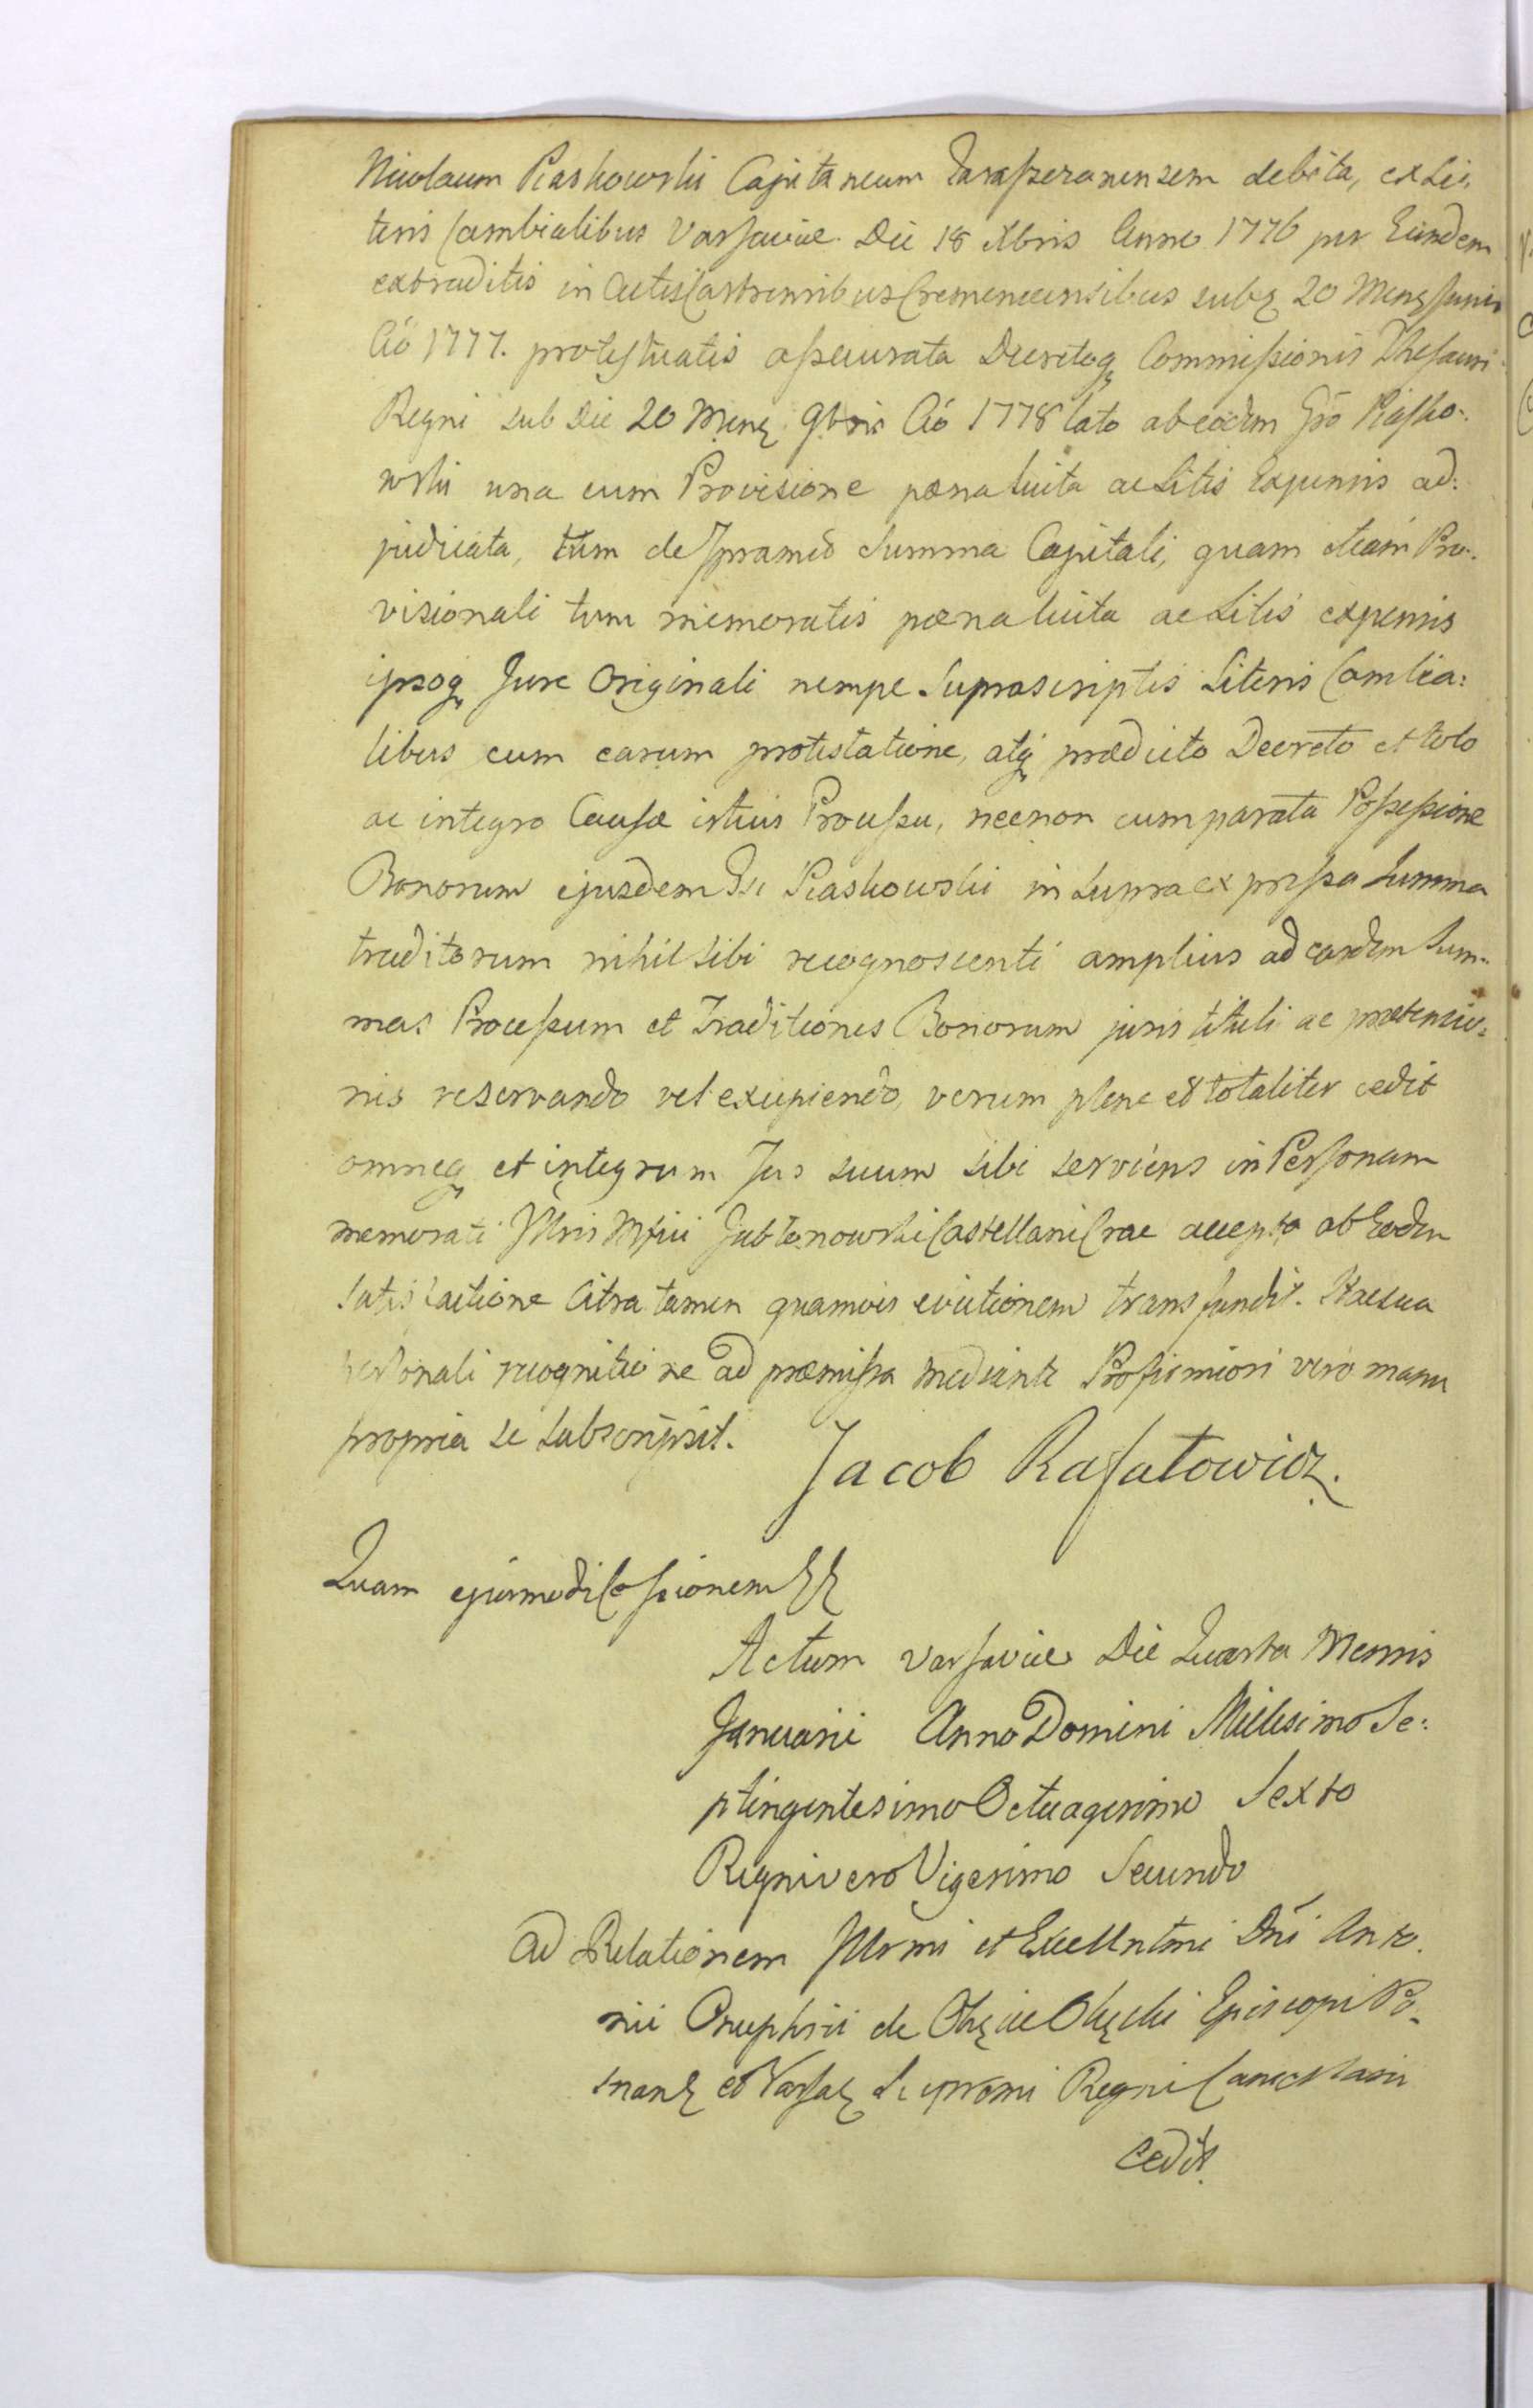 Nicolaum Piaskowski Capitaneum Taraszczanensem debita, ex Li-
teris Cambialibus Varsaviæ Die 18 Xbris Anno 1776 per Eundem
extraditis in Actis Castrensibus Cremenecensibus sub 20 Mens Junii
Aõ 1777. protestuatis assecurata Decretoq Commissionis Thesauri
Regni sub Die 20 Mens 9bris Aõ 1778 lato ab eodem Gso Piasko-
wski una cum Provisione pœna luita ac Litis Expensis ad-
judicata, tum de præmo Summa Capitali, quam etiam Pro-
visionali tum memoratis pœna luita ac Litis expensis
ipsoq Jure Originali nempe Suprascriptis Literis Cambia-
libus cum earum protestatione, atq prædicto Decreto et toto
ac integro Causæ istius Processu, necnon cum parata Possessione
Bonorum ejusdem Gsi Piaskowski in supra expressa Summa
traditorum nihil sibi recognoscenti amplius ad easdem Sum-
mas Processum et Traditiones Bonorum juris tituli ac prætensio-
nis reservando vel excipiendo, verum plene et totaliter cedit
omneq et integrum Jus suum sibi serviens in Personam
memorati Jllris Mfici Jabłonowski Castellani Crac accepta ab Eodem
satisfactione Citra tamen quamvis evictionem transfundit. Hac sua
personali recognitione ad præmissa mediante Pro firmiori vero manu
propria se subscripsit.
Jacob Rafałowicz.
Quam ejusmodi Cessionem
Actum Varsaviæ Die Quarta Mensis
Januarii Anno Domini Millesimo Se-
ptingentesimo Octuagesimo Sexto
Regni vero Vigesimo Secundo
Ad Relationem Jllrmi et Excellntmi Dni Anto-
nii Onuphrii de Okęcie Okęcki Episcopi Po-
snan et Varsa Supremi Regni Cancellarii
Cedit.